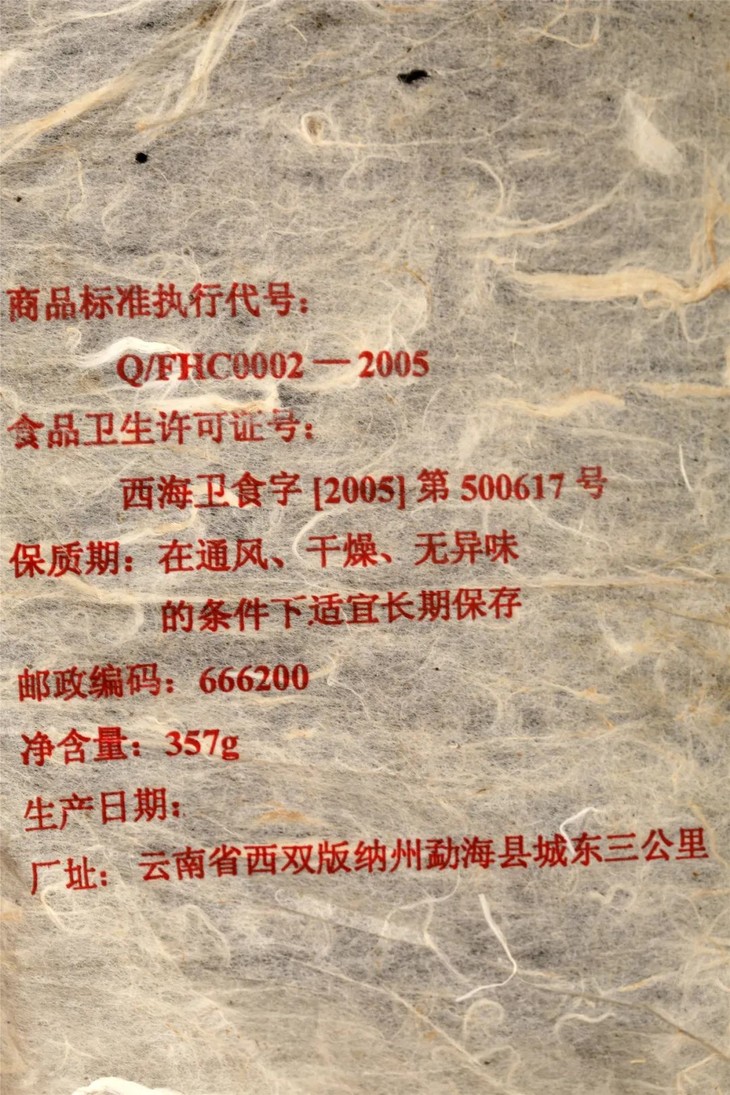 商品标准执行代号：
Q/FHC0002－2005
食品卫生许可证号：
西海卫食字 [2005] 第 500617 号
保质期：在通风、干燥、无异味
的条件下适宜长期保存
邮政编码：666200
净含量：357g
生产日期：
厂址：云南省西双版纳州勐海县城东三公里